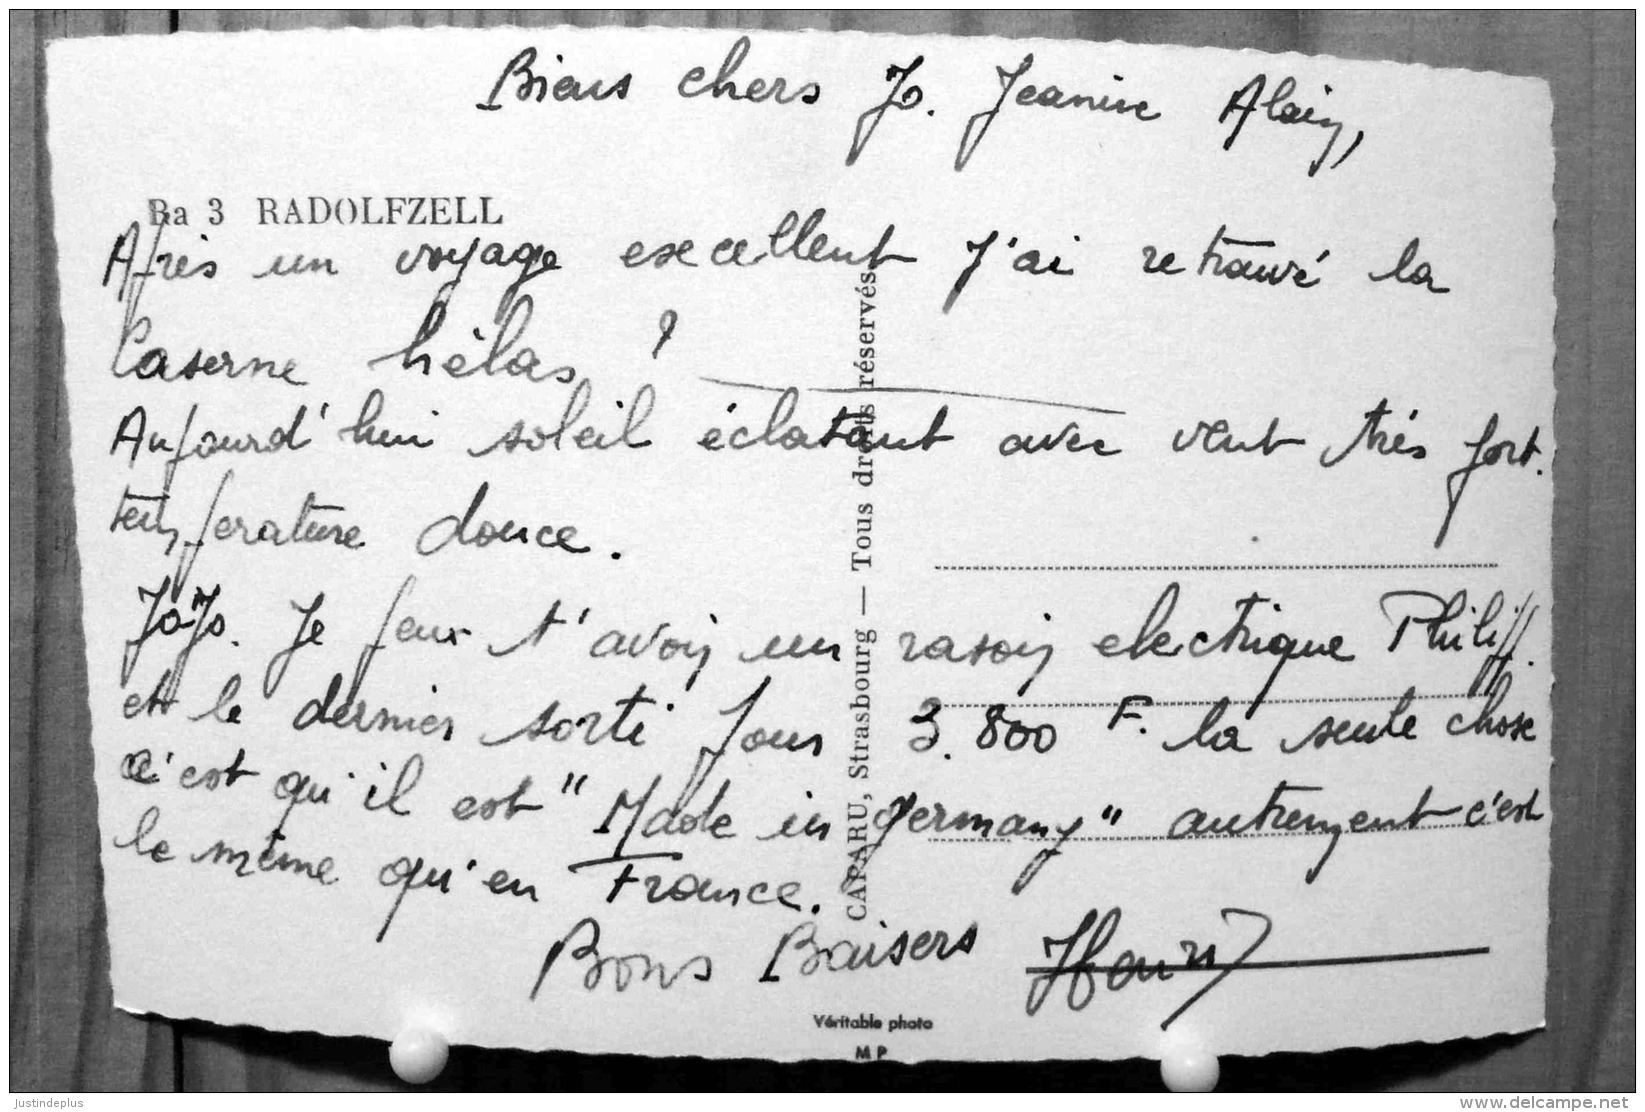 Biens chers Jo. Jeanine Alain,
Ba 3 RADOLFZELL
Après un voyage execellent J'ai retrouvé la
Caserne hélas !
Aujourd'hui soleil éclatant avec vent très fort.
température douce.
JoJo. Je peux t'avoir un rasoir electrique Philipp.
et le dernier sorti pour 3.800 F. la seule chose
c'est qu'il est "Made in germany" autrement c'est
le même qu'en France.
Bons Baisers Henri
CAPARU, Strasbourg — Tous droits réservés.
Véritable photo
M P
justindeplus
www.delcampe.net